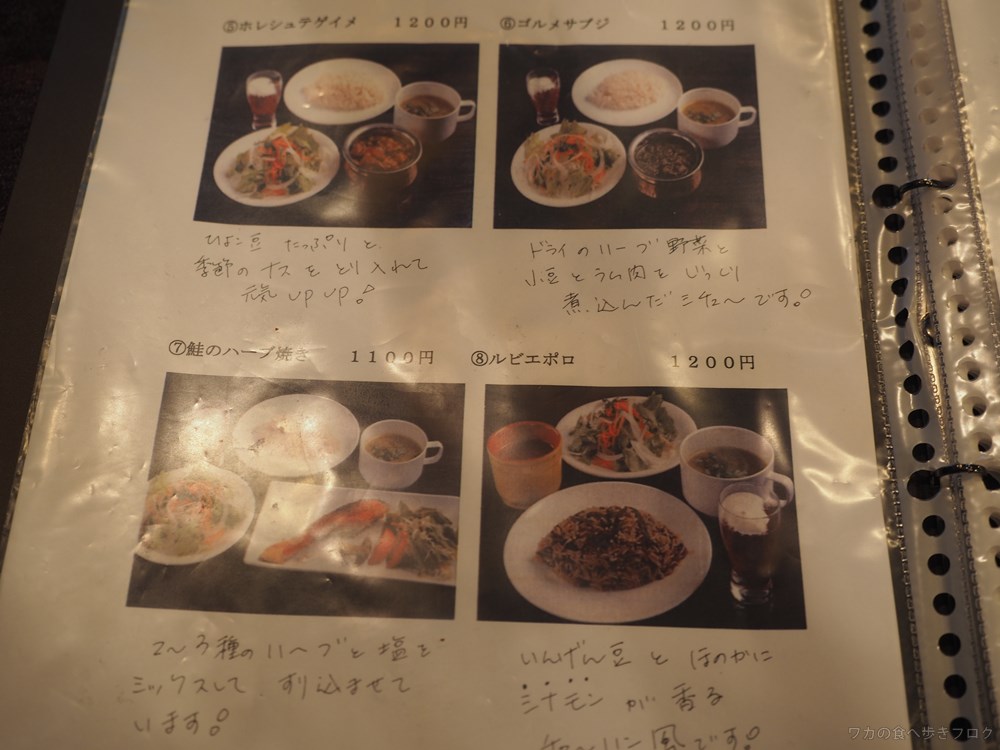 ⑤ホレシュテゲイメ 1200円
ひよこ豆 たっぷりと
季節のナスをとり入れて
元気up up!
⑥ゴルメサブジ 1200円
ドライのハーブ野菜と
小豆とラム肉をじっくり
煮込んだシチューです。
⑦鮭のハーブ焼き 1100円
2〜3種のハーブと塩を
ミックスして すり込ませて
います。
⑧ルビエポロ 1200円
いんげん豆と ほのかに
シナモンが香る
風です。
ワカの食べ歩きブログ